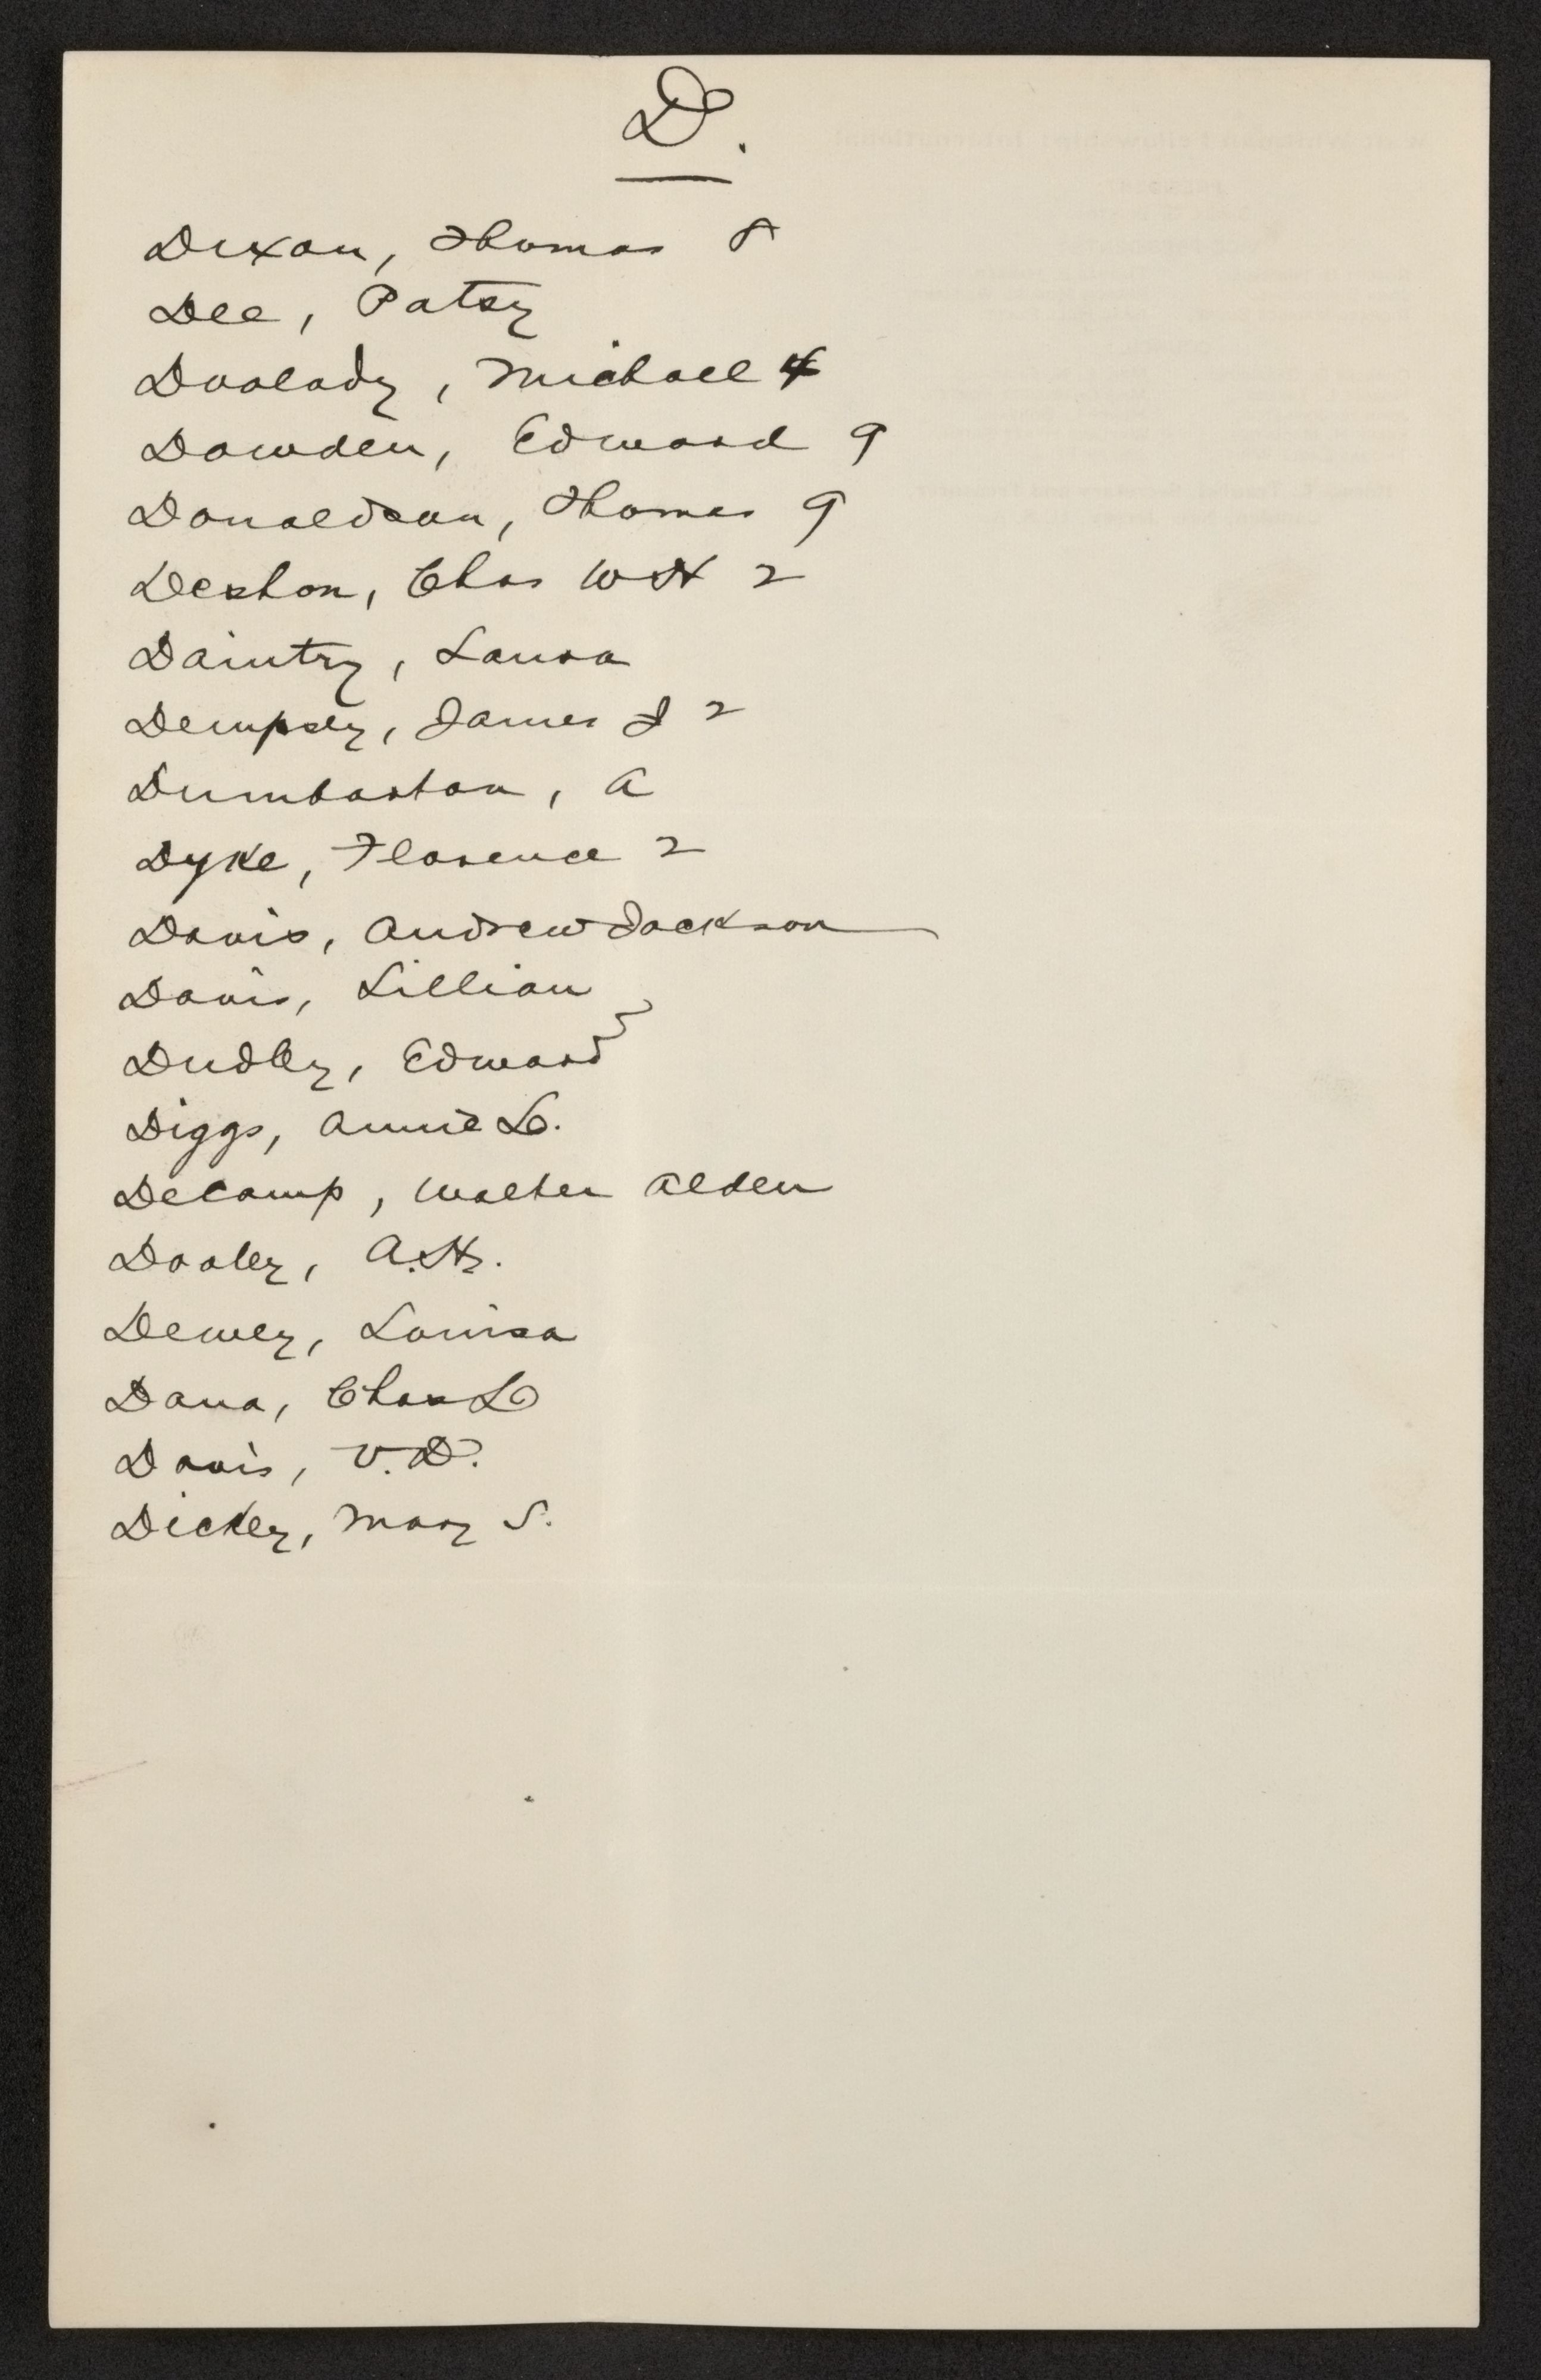 D.
Dixon, Thomas 8
Dee, Patsy
Doolady, Michael 4
Dowden, Edward 9
Donaldson, Thomas 9
Deshon, Chas W H 2
Daintry, Laura
Dempsey, James J 2
Dumbarton, A
Dyke, Florence 2
Davis, Andrew Jackson
Davis, Lillian
Dudley, Edward
Diggs, Annie L.
Decamp, Walter Alden
Dooley, A.H.
Dewey, Louisa
Dana, Chas L
Davis, V.D.
Dickey, Mary S.